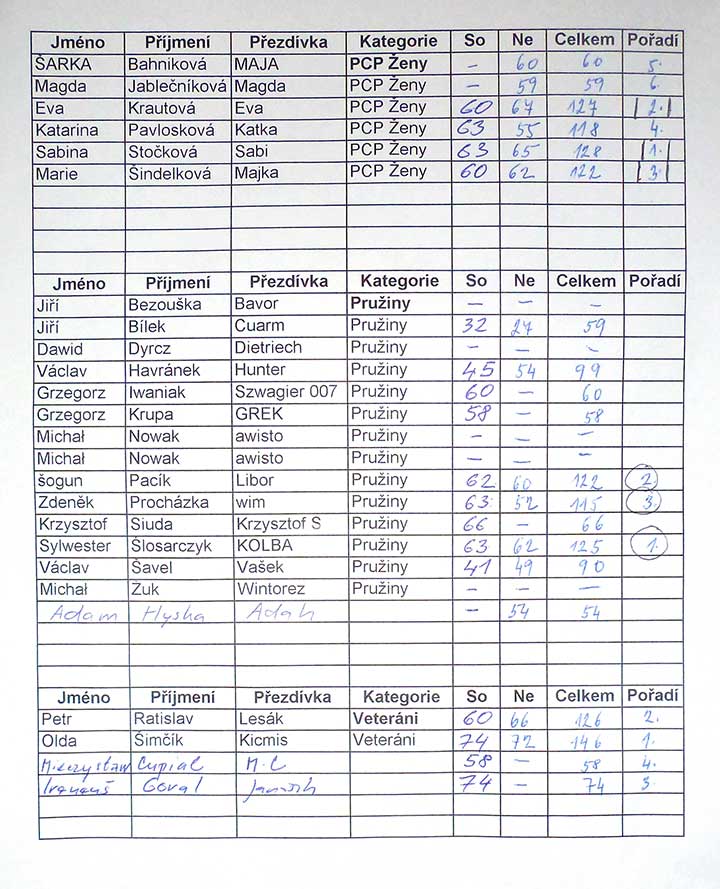 Jméno Příjmení Přezdívka Kategorie So Ne Celkem Pořadí
ŠARKA Bahniková MAJA PCP Ženy - 60 60 5.
Magda Jablečníková Magda PCP Ženy - 59 59 6.
Eva Krautová Eva PCP Ženy 60 67 127 2.
Katarina Pavlosková Katka PCP Ženy 63 55 118 4.
Sabina Stočková Sabi PCP Ženy 63 65 128 1.
Marie Šindelková Majka PCP Ženy 60 62 122 3.
Jméno Příjmení Přezdívka Kategorie So Ne Celkem Pořadí
Jiří Bezouška Bavor Pružiny - - -
Jiří Bílek Cuarm Pružiny 32 27 59
Dawid Dyrcz Dietriech Pružiny - - -
Václav Havránek Hunter Pružiny 45 54 99
Grzegorz Iwaniak Szwagier 007 Pružiny 60 - 60
Grzegorz Krupa GREK Pružiny 58 - 58
Michał Nowak awisto Pružiny - - -
Michał Nowak awisto Pružiny - - -
šogun Pacík Libor Pružiny 62 60 122 2.
Zdeněk Procházka wim Pružiny 63 52 115 3.
Krzysztof Siuda Krzysztof S Pružiny 66 - 66
Sylwester Ślosarczyk KOLBA Pružiny 63 62 125 1.
Václav Šavel Vašek Pružiny 41 49 90
Michał Żuk Wintorez Pružiny - - -
Adam Hyska Adah - 54 54
Jméno Příjmení Přezdívka Kategorie So Ne Celkem Pořadí
Petr Ratislav Lesák Veteráni 60 66 126 2.
Olda Šimčík Kicmis Veteráni 74 72 146 1.
Cupial M.C 58 - 58 4.
Goral 74 - 74 3.